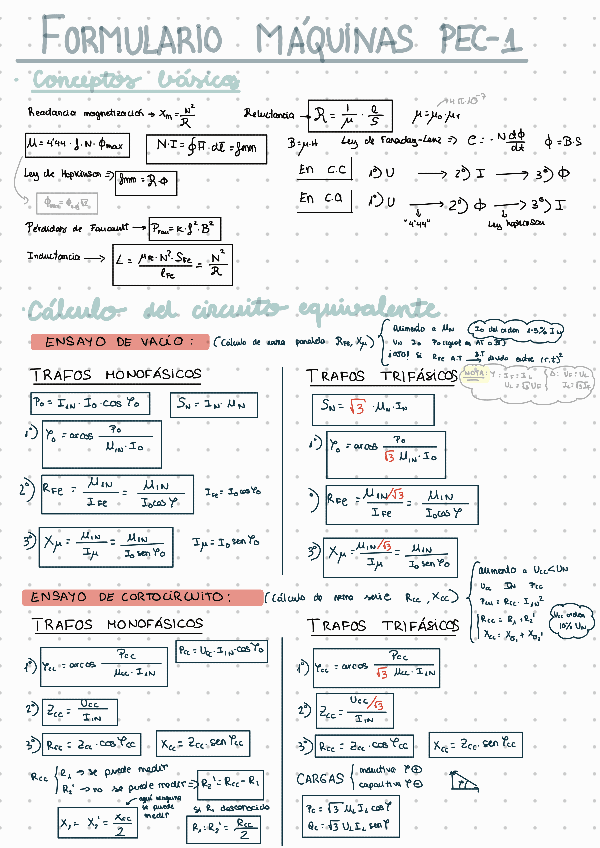 FORMULARIO MÁQUINAS PEC-1
Conceptos básicos
Reactancia magnetización → Xm = N²/R
Reluctancia → R = 1/μ · l/S
μ = μ₀ · μr
4π·10⁻⁷
U = 4'44 · f · N · Φmax
N·I = ∮H·dl = fmm
B = μ·H
Ley de Faraday-Lenz ⇒ e = -N dΦ/dt
Φ = B·S
Ley de Hopkinson ⇒ fmm = R·Φ
En C.C 1º) U → 2º) I → 3º) Φ
En C.A 1º) U → 2º) Φ → 3º) I
"4'44"
Ley hopkinson
Pérdidas de Foucault → PFou = K·f²·B²
Inductancia → L = μFe·N²·SFe/lFe = N²/R
Cálculo del circuito equivalente
ENSAYO DE VACÍO: (Cálculo de rama paralelo RFe, Xμ)
alimento a UN
I₀ del orden 1-5% IN
UN I₀ P₀
NOTA: Y: IF = IL
UL = √3 UF
Δ: UF = UL
IL = √3 IF
TRAFOS MONOFÁSICOS
P₀ = I1N · I₀ · cos φ₀
SN = IN · UN
1º) φ₀ = arcos P₀/U1N · I₀
2º) RFe = U1N/IFe = U1N/I₀cosφ
IFe = I₀cosφ₀
3º) Xμ = U1N/Iμ = U1N/I₀senφ₀
Iμ = I₀senφ₀
TRAFOS TRIFÁSICOS
SN = √3 · UN · IN
1º) φ₀ = arcos P₀/√3 U1N · I₀
º) RFe = U1N/√3/IFe = U1N/I₀cosφ
3º) Xμ = U1N/√3/Iμ = U1N/I₀senφ₀
ENSAYO DE CORTOCIRCUITO: (Cálculo de rama serie Rcc, Xcc)
alimento a Ucc<UN
Ucc IN Pcc
Pcu = Rcc · I1N²
Rcc = R₁ + R₂'
Ucc orden 10% UN
TRAFOS MONOFÁSICOS
Pcc = Ucc · I1N · cosφ₀
1º) φcc = arcos Pcc/Ucc · I1N
2º) Zcc = Ucc/I1N
3º) Rcc = Zcc · cosφcc
Xcc = Zcc · senφcc
Rcc
R₁ → se puede medir
R₂' → no se puede medir ⇒ R₂' = Rcc - R₁
aquí ninguna se puede medir
X₁ = X₂' = Xcc/2
si R₁ desconocido
R₁ = R₂' = Rcc/2
TRAFOS TRIFÁSICOS
1º) φcc = arcos Pcc/√3 Ucc · I1N
2º) Zcc = Ucc/√3/I1N
3º) Rcc = Zcc · cosφcc
Xcc = Zcc · senφcc
CARGAS
inductiva φ⊕
capacitiva φ⊖
Pc = √3 UL IL cosφ
Qc = √3 UL IL senφ